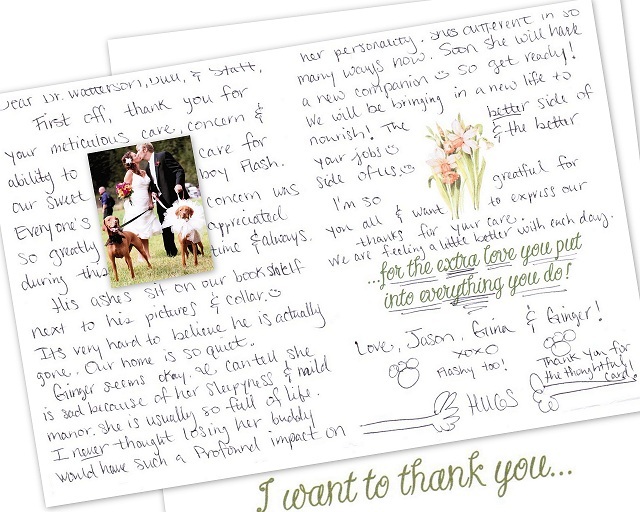 Dear Dr. Watterson, & Staff,
First off, thank you for
your meticulous care, concern &
ability to care for
our sweet boy Flash.
Everyone's concern was
so greatly appreciated
during this time & always.
His ashes sit on our bookshelf
next to his pictures & collar.☺
It's very hard to believe he is actually
gone. Our home is so quiet.
Ginger seems okay. We can tell she
is sad because of her sleepyness & mild
manor. She is usually so full of life.
I never thought losing her buddy
would have such a profound impact on
her personality. She's different in so
many ways now. Soon she will have
a new companion ☺ so get ready!
We will be bringing in a new life to
nourish! The better side of
your jobs ☺ & the better
side of us. ☺
I'm so greatful for
you all & want to express our
thanks for your care.
We are feeling a little better with each day.
...for the extra love you put
into everything you do!
Love, Jason, Gina & Ginger!
xoxo
Flashy too!
Thank you for
the thoughtful
card!
HUGS
I want to thank you...